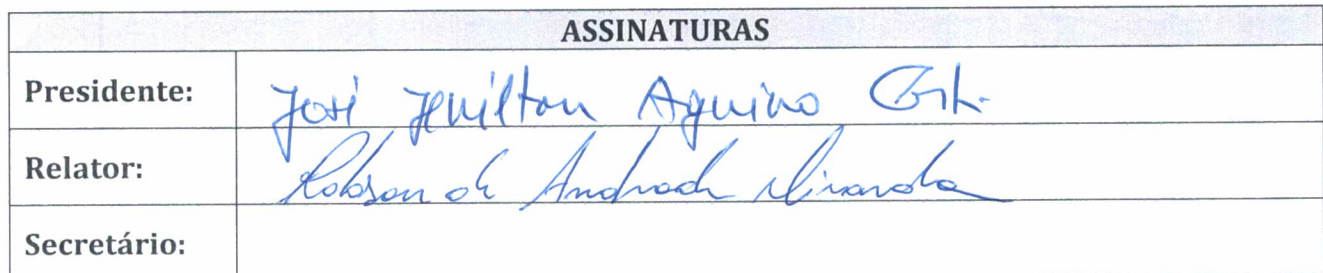 ASSINATURAS
Presidente: José Jenilton Aquino Costa
Relator: Robson de Andrade Miranda
Secretário: